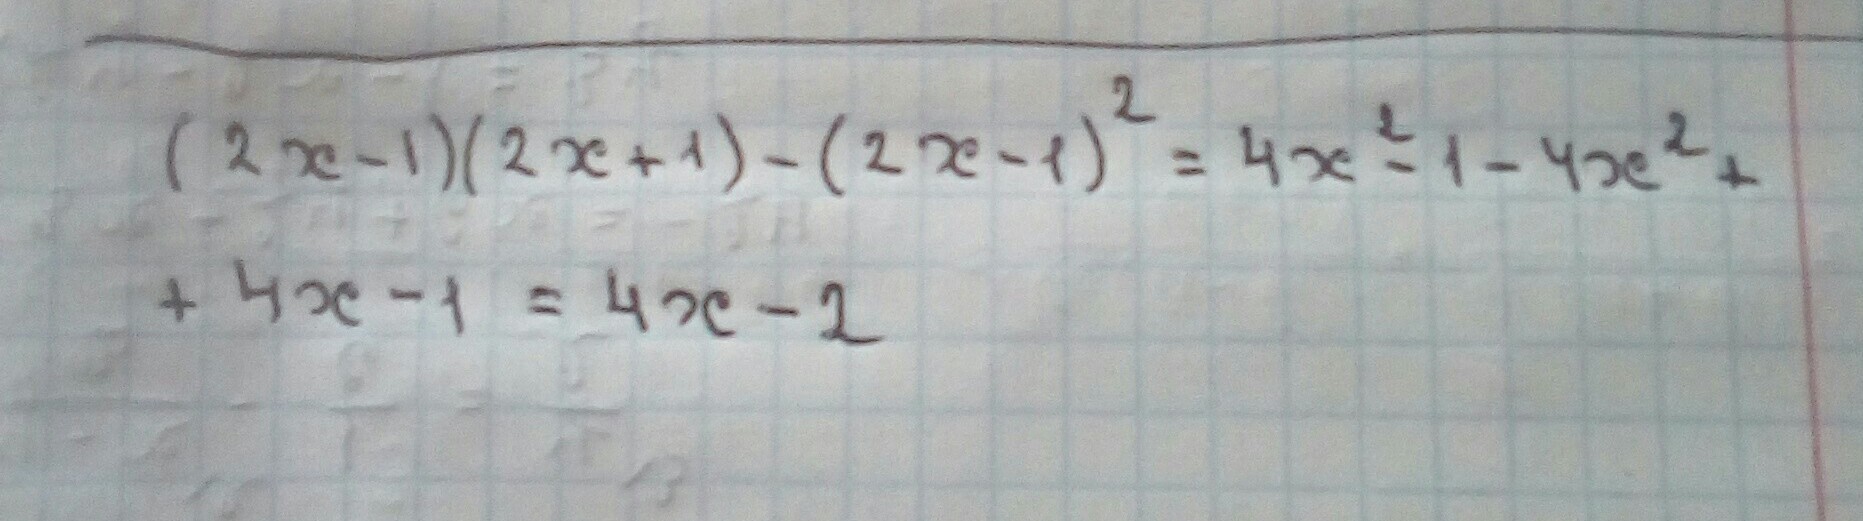 (2x-1)(2x+1)-(2x-1)² = 4x²-1-4x²+
+4x-1 = 4x-2